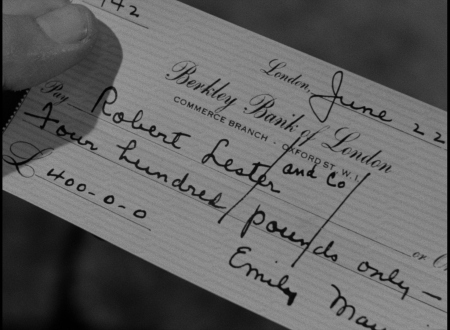 142
London, June 22
Berkley Bank of London
COMMERCE BRANCH - OXFORD ST. W.1.
and Co
Pay Robert Lester
Four hundred pounds only -
or
£ 400-0-0
Emily